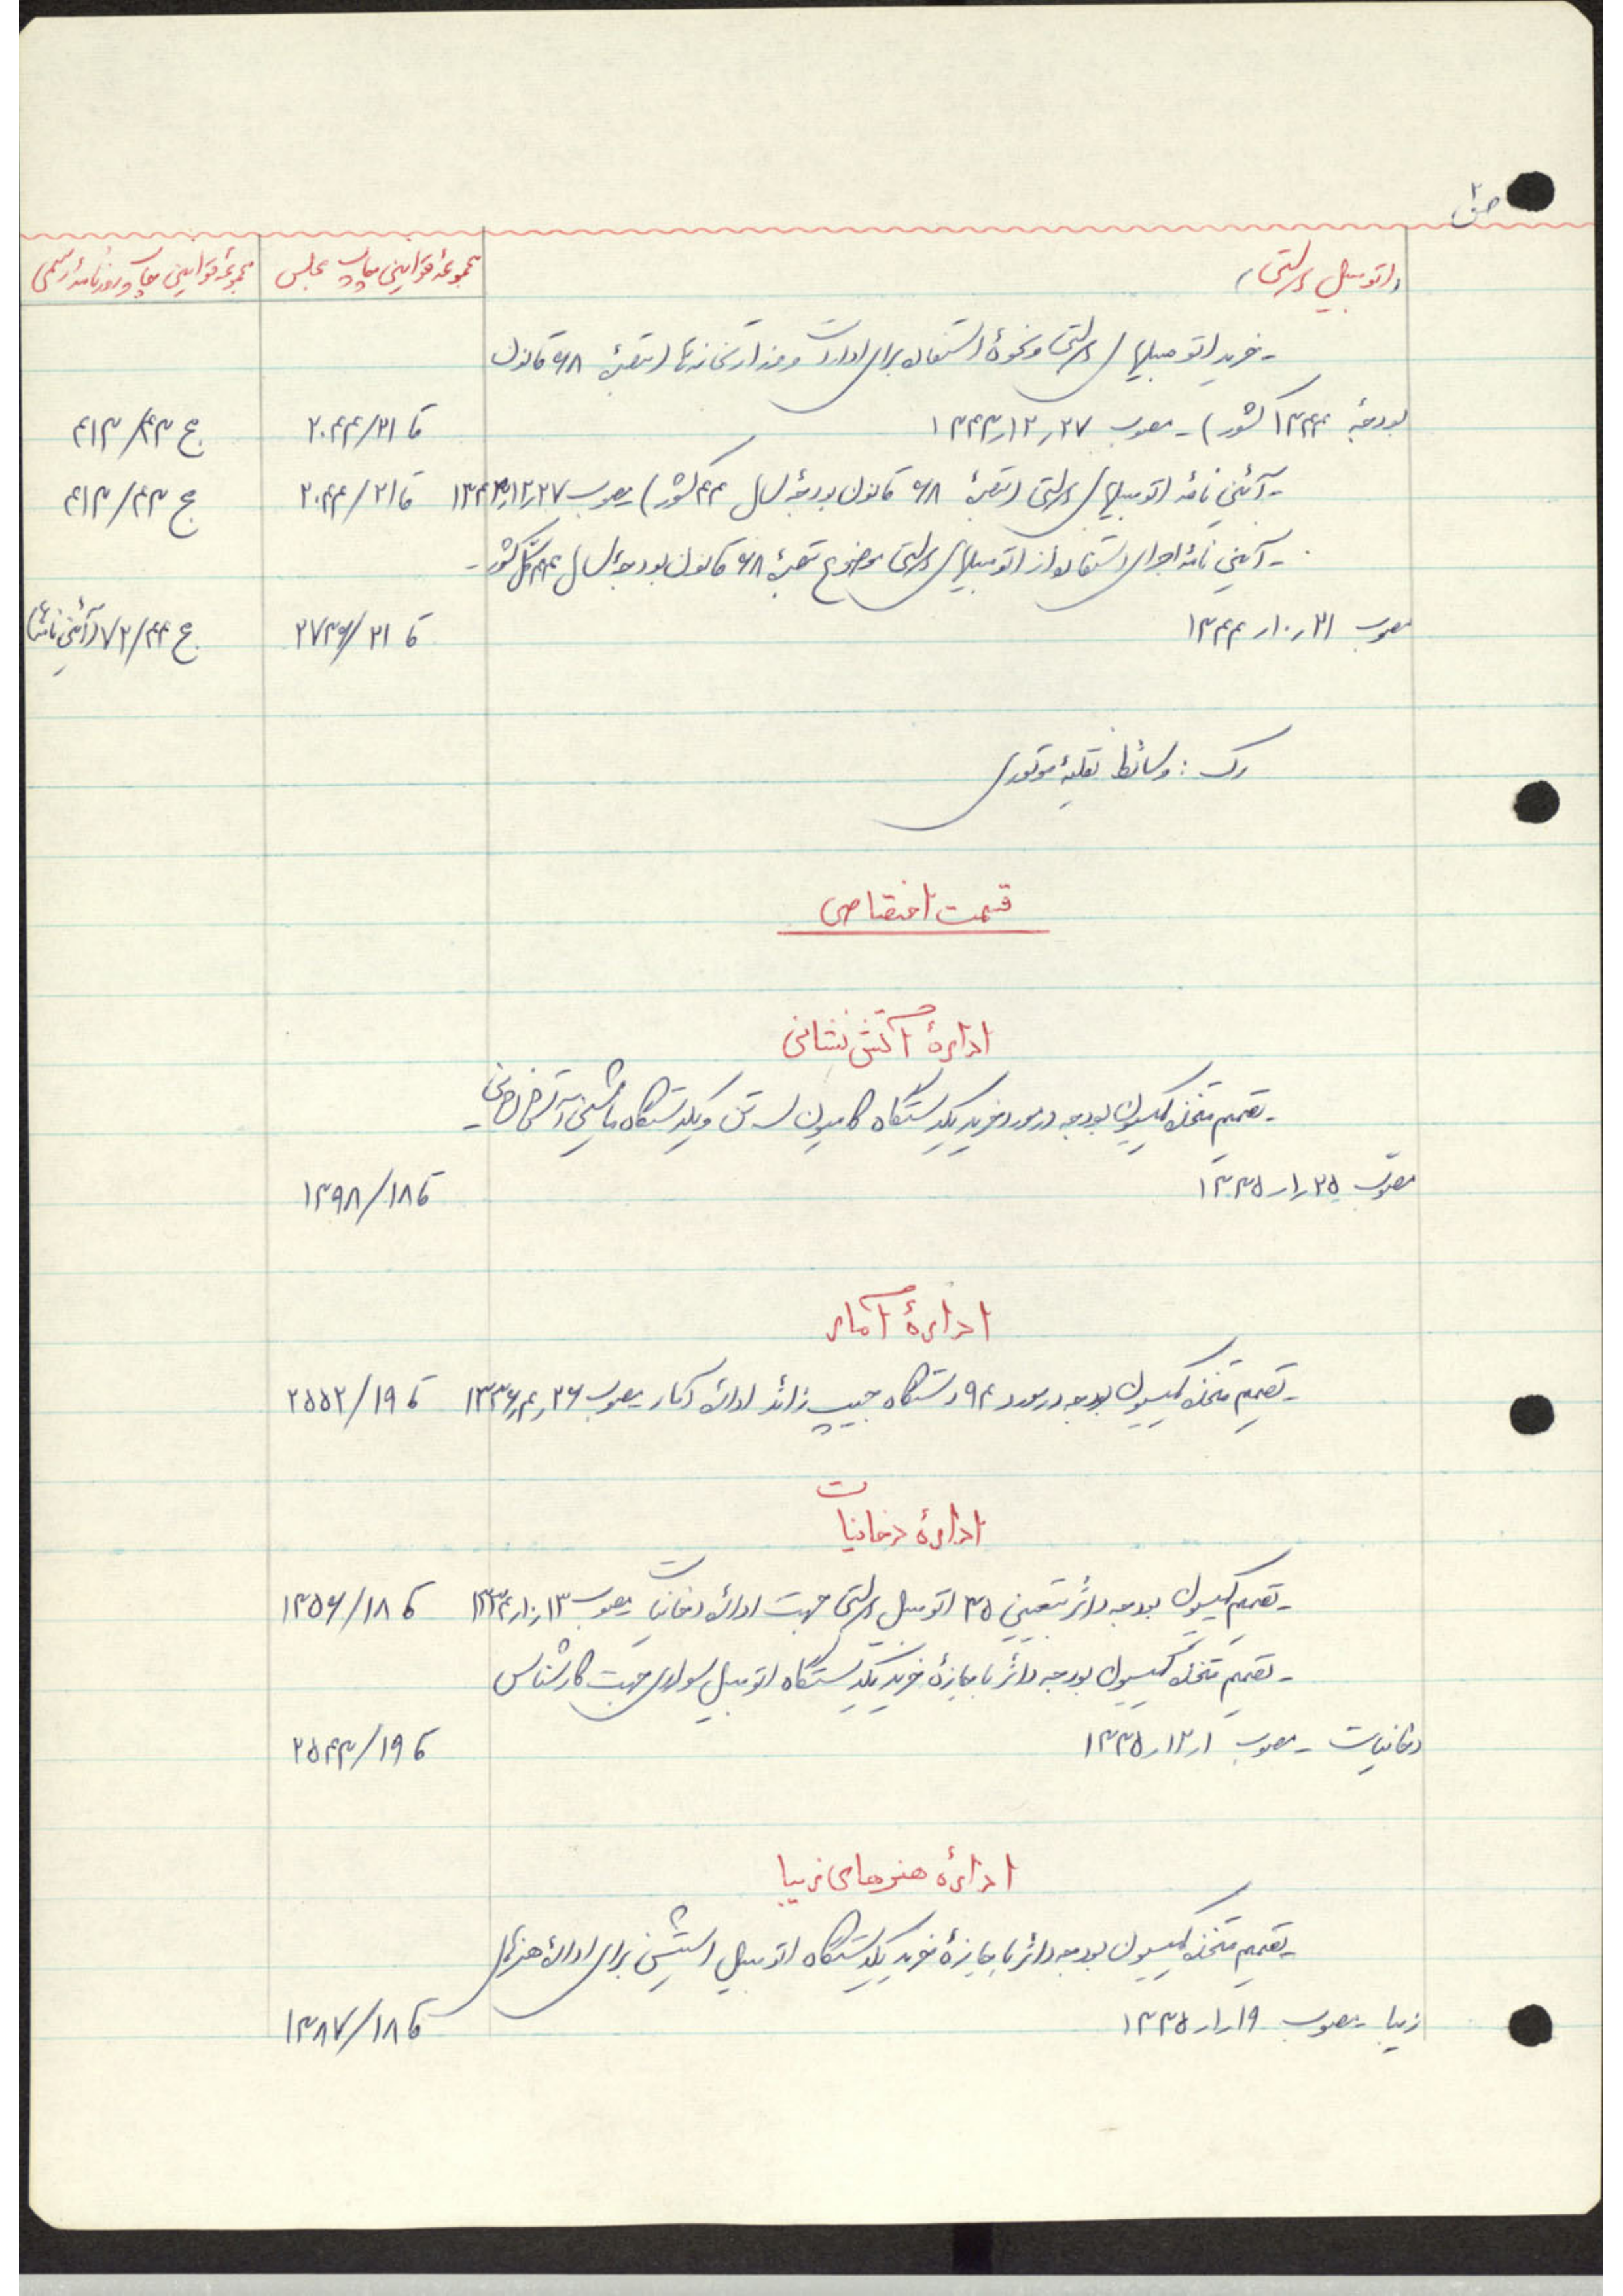 ص ۲
(اتومبیل دولتی) مجموعهٔ قوانین چاپ مجلس مجموعهٔ قوانین چاپ روزنامهٔ رسمی
- خرید اتومبیلهای دولتی و نحوهٔ استفاده برای ادارات و وزارتخانه‌ها (تبصرهٔ ۶۸ قانون
بودجهٔ ۱۳۴۴ کشور) - مصوب ۲۷ر۱۲ر۱۳۴۳ ق ۲۱/۲۰۴۴ ج ۴۳/۴۱۳
- آئین نامهٔ اتومبیلهای دولتی (تبصرهٔ ۶۸ قانون بودجهٔ سال ۴۴ کشور) مصوب ۲۷ر۱۲ر۱۳۴۳ ق ۲۱/۲۰۴۴ ج ۴۳/۴۱۳
- آئین نامهٔ اجرای استفاده از اتومبیلهای دولتی موضوع تبصرهٔ ۶۸ قانون بودجهٔ سال ۴۴ کل کشور -
مصوب ۲۱ر۱۰ر۱۳۴۴ ق ۲۱/۲۷۳۶ ج ۴۴/۷۲ (آئین نامه‌ها)
رک : وسائط نقلیهٔ موتوری
قسمت اختصاصی
ادارهٔ آتش نشانی
- تصمیم متخذه کمیسیون بودجه در مورد خرید یکدستگاه کامیون سه تن و یکدستگاه ماشین آتش نشانی -
مصوّب ۲۵ر۱ر۱۳۳۵ ق ۱۸/۱۳۹۸
ادارهٔ آمار
- تصمیم متخذه کمیسیون بودجه در مورد ۹۴ دستگاه جیپ زائد ادارهٔ آمار - مصوب ۲۶ر۴ر۱۳۳۶ ق ۱۹/۲۵۵۲
ادارهٔ دخانیات
- تصمیم کمیسیون بودجه دائر بتعیین ۳۵ اتومبیل دولتی جهت ادارهٔ دخانیات مصوب ۱۳ر۱۰ر۱۳۳۴ ق ۱۸/۱۳۵۶
- تصمیم متخذه کمیسیون بودجه دائر باجازهٔ خرید یکدستگاه اتومبیل سواری جهت کارشناس
دخانیات - مصوب ۱ر۱۲ر۱۳۳۵ ق ۱۹/۲۵۴۳
ادارهٔ هنرهای زیبا
- تصمیم متخذه کمیسیون بودجه دائر باجازهٔ خرید یکدستگاه اتومبیل استیشن برای ادارهٔ هنرهای
زیبا - مصوب ۱۹ر۱ر۱۳۳۵ ق ۱۸/۱۳۸۷